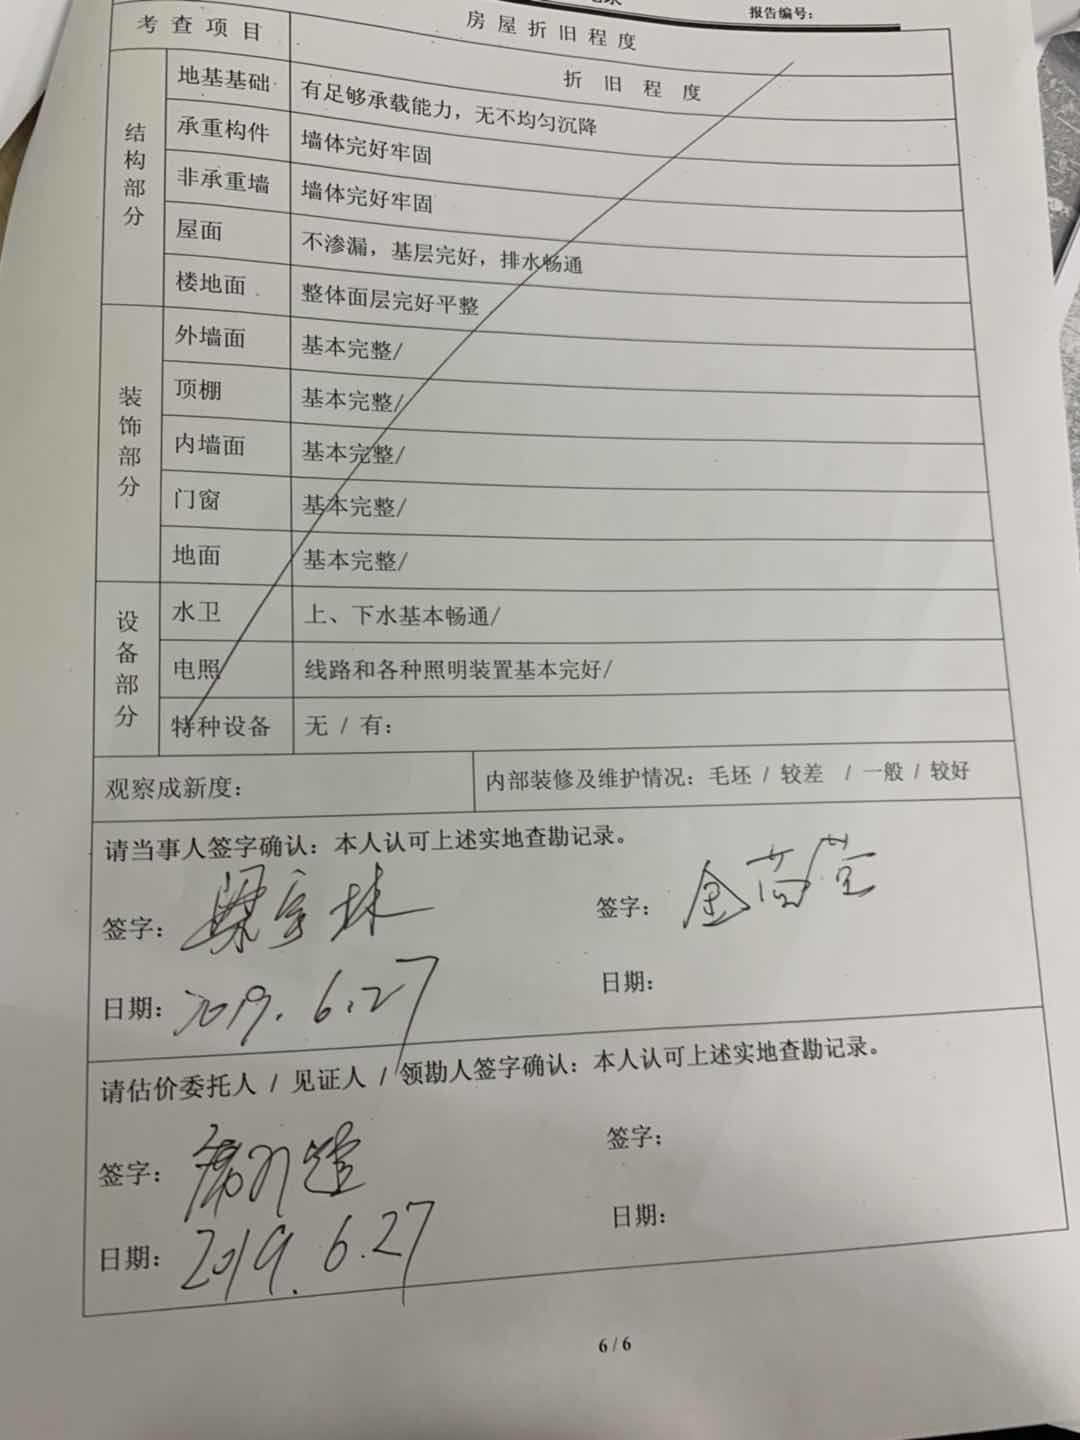 报告编号：
考查项目
房屋折旧程度
折旧程度
结构部分
地基基础 有足够承载能力，无不均匀沉降
承重构件 墙体完好牢固
非承重墙 墙体完好牢固
屋面 不渗漏，基层完好，排水畅通
楼地面 整体面层完好平整
装饰部分
外墙面 基本完整/
顶棚 基本完整/
内墙面 基本完整/
门窗 基本完整/
地面 基本完整/
设备部分
水卫 上、下水基本畅通/
电照 线路和各种照明装置基本完好/
特种设备 无 / 有：
观察成新度： 内部装修及维护情况：毛坯 / 较差 / 一般 / 较好
请当事人签字确认：本人认可上述实地查勘记录。
签字： 签字：
日期：2019.6.27 日期：
请估价委托人 / 见证人 / 领勘人签字确认：本人认可上述实地查勘记录。
签字： 签字；
日期：2019.6.27 日期：
6 / 6